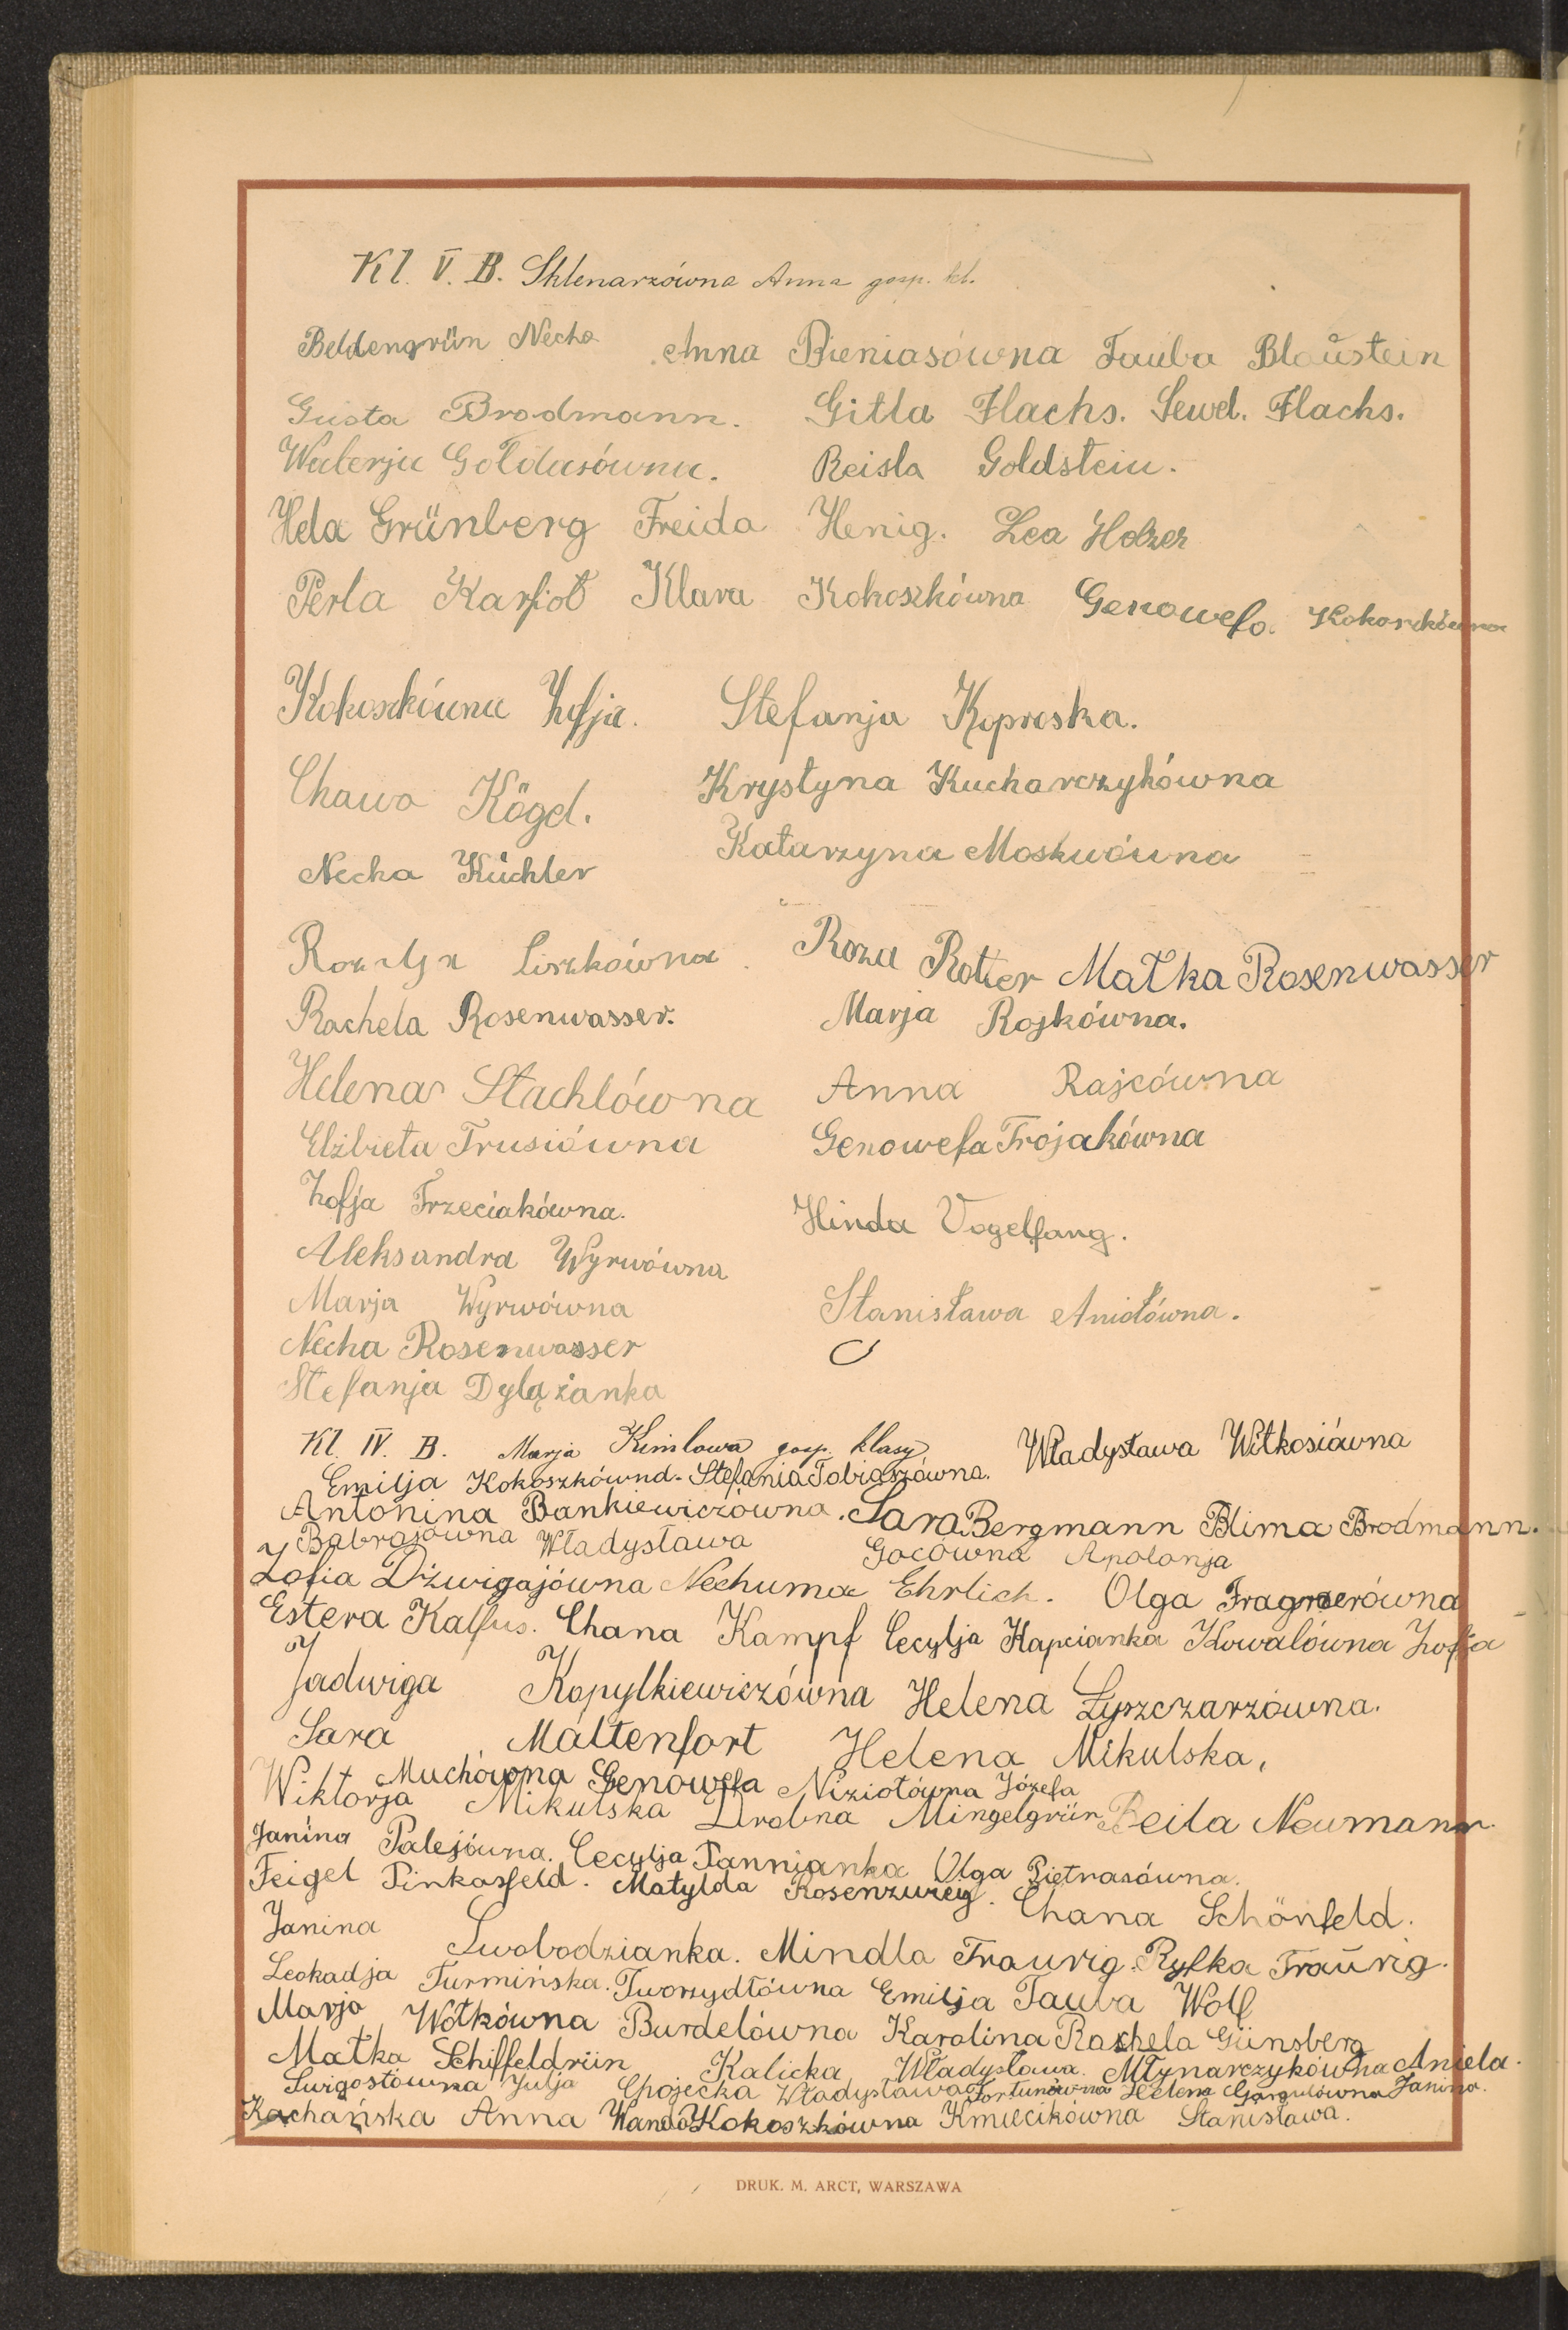 Kl. V. B. Sklenarzówna Anna gosp. kl.
Beldengrün Necha Anna Bieniasówna Tauba Blaustein
Gusta Brodmann. Gitla Flachs. Sewd. Flachs.
Walerja Gołdasówna. Reisla Goldstein.
Hela Grünberg Freida Henig. Lea Holzer
Perla Karfioł Klara Kokoszkówna Genowefa Kokoszkówna
Kokoszkówna Zofja. Stefanja Koproska.
Chawa Kögel. Krystyna Kucharczykówna
Necha Küchler Katarzyna Moskwówna
Rozalja Liszkówna Roza Rotter Małka Rosenwasser
Rachela Rosenwasser. Marja Rojkówna.
Helena Stachlówna Anna Rajcówna
Elżbieta Trusiówna Genowefa Trojakówna
Zofja Trzeciakówna. Hinda Vogelfang.
Aleksandra Wyrwówna
Marja Wyrwówna Stanisława Aniołówna.
Necha Rosenwasser
Stefanja Dylążanka
Kl. IV. B. Marja Kimlowa gosp. klasy Władysława Witkosiówna
Emilja Kokoszkówna. Stefania Tobiaszówna.
Antonina Bankiewiczówna. Sara Bergmann Blima Brodmann.
Babrajówna Władysława Gocówna Apolonja
Zofia Dźwigajówna Nechuma Ehrlich. Olga Fragnerówna
Estera Kalfus. Chana Kampf Cecylja Kapcianka Kowalówna Zofja
Jadwiga Kopylkiewiczówna Helena Łyszczarzówna.
Sara Maltenfort Helena Mikulska,
Muchówna Genowefa Niziołówna Józefa
Wiktorja Mikulska Drobna Mingelgrün Beila Neumann.
Janina Palejówna. Cecylja Pannianka Olga Pietrasówna.
Feigel Pinkasfeld. Matylda Rosenzweig. Chana Schönfeld.
Janina Swobodzianka. Mindla Traurig. Ryfka Traurig.
Leokadja Turmińska. Tworzydłówna Emilja Tauba Wolf
Marja Wołkówna Burdelówna Karolina Rachela Günsberg
Małka Schiffeldrün Kalicka Władysława. Młynarczykówna Aniela.
Świgostówna Julja Chojecka Władysława Fortunówna Helena Gargulówna Janina.
Kachańska Anna Wanda Kokoszkówna Kmiecikówna Stanisława.
DRUK. M. ARCT, WARSZAWA